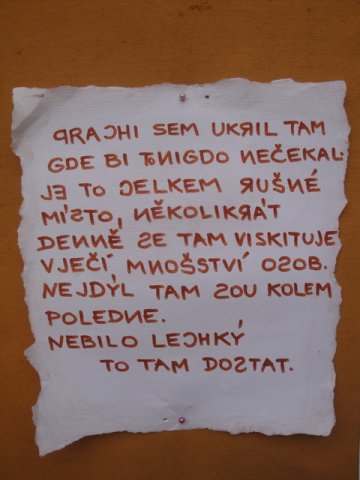 PRACHI SEM UKRIL TAM
GDE BI TO NIGDO NEČEKAL.
JE TO CELKEM RUŠNÉ
MÍSTO, NĚKOLIKRÁT
DENNĚ SE TAM VISKITUJE
VJEČÍ MNOŠSTVÍ OSOB.
NEJDÝL TAM SOU KOLEM
POLEDNE.
NEBILO LECHKÝ
TO TAM DOSTAT.